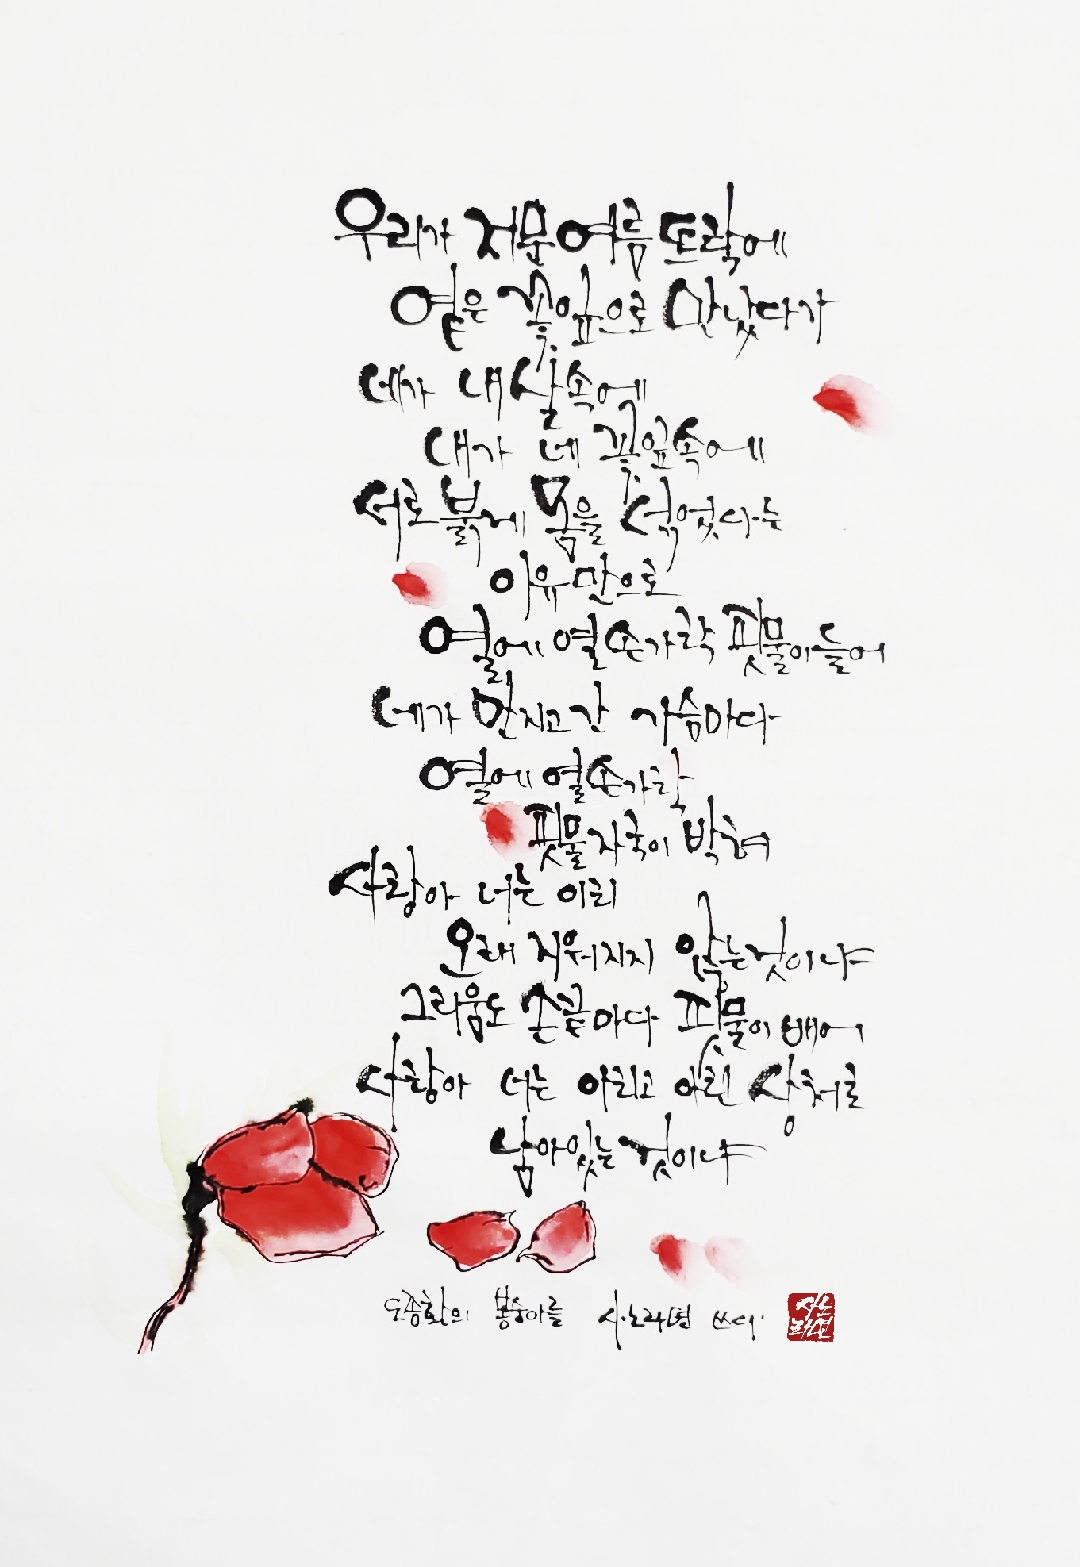 우리가 저문 여름 뜨락에
엷은 꽃잎으로 만났다가
네가 내 살 속에
내가 네 꽃잎 속에
서로 붉게 몸을 섞었다는
이유만으로
열에 열 손가락 핏물이 들어
네가 만지고 간 가슴마다
열에 열 손가락
핏물자국이 박혀
사랑아 너는 이리
오래 지워지지 않는 것이냐
그리움도 손끝마다 핏물이 배어
사랑아 너는 아리고 아린 상처로
남아있는 것이냐
도종환의 봉숭아를 쓰다